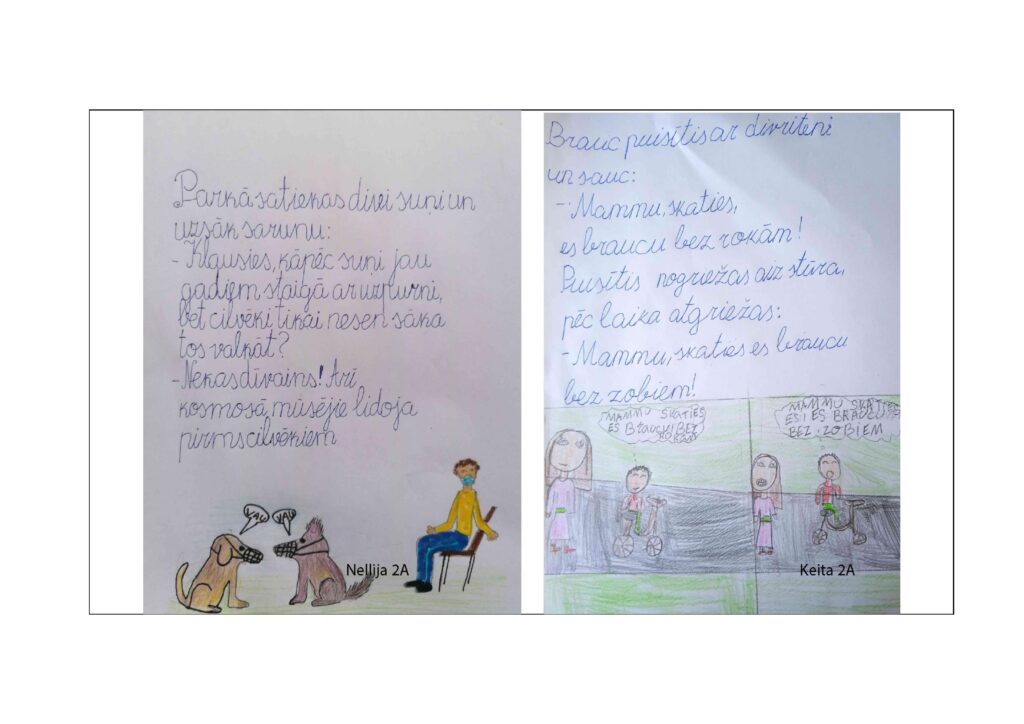 Parkā satiekas divi suņi un
uzsāk sarunu:
- Klausies, kāpēc suņi jau
gadiem staigā ar uzpurni,
bet cilvēki tikai nesen sāka
tos valkāt?
- Nekas dīvains! Arī
kosmosā, mūsējie lidoja
pirms cilvēkiem
VAU VAU
Nellija 2A
Brauc puisītis ar divriteni
un sauc:
- Mammu, skaties,
es braucu bez rokām!
Puisītis nogriežas aiz stūra,
pēc laika atgriežas:
- Mammu, skaties es braucu
bez zobiem!
MAMMU SKATIES
ES BRAUCU BEZ
ROKĀM
MAMMU SKAT
ES BRAUCU
BEZ ZOBIEM
Keita 2A